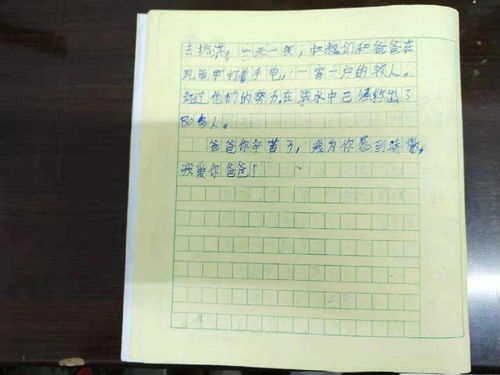 去抗洪。一天一夜，叔叔们和爸爸在
风雨中打着手电，一家一户的救人。
经过他们的努力，在洪水中已经救出了
80多人。
爸爸你辛苦了，我为你感到骄傲，
我爱你爸爸！